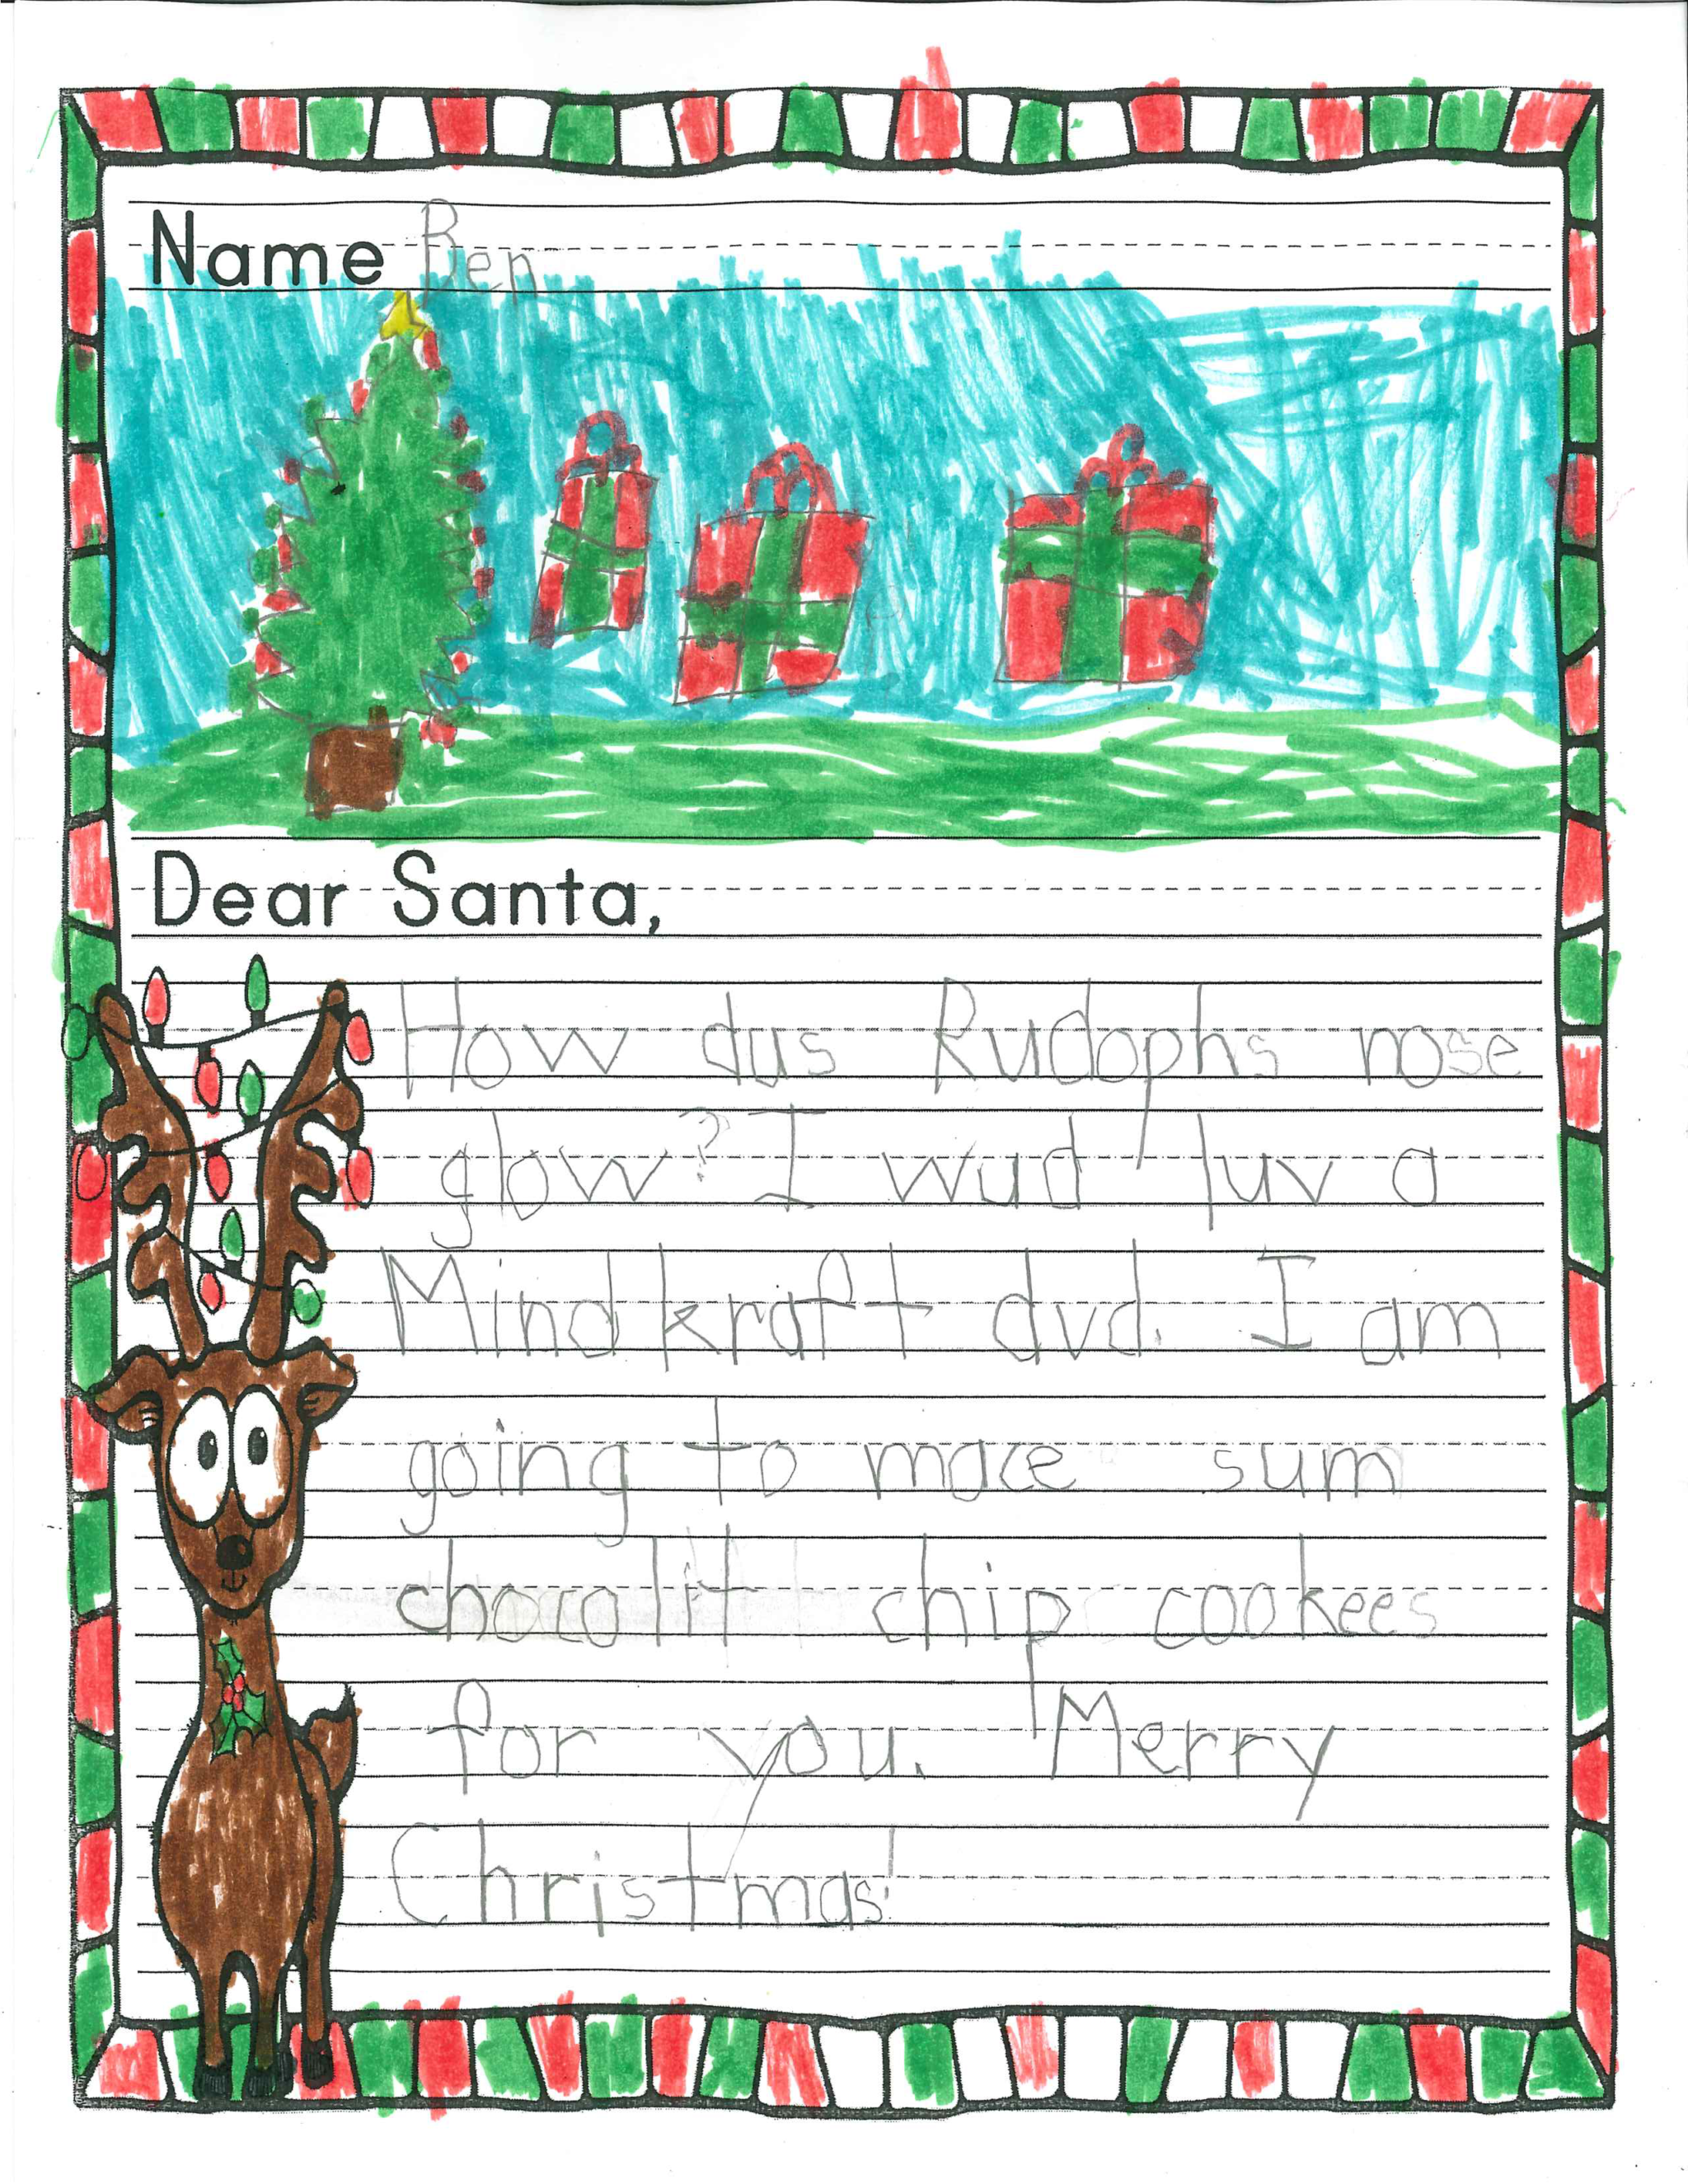 Name Ben
Dear Santa,
How dus Rudophs nose
glow? I wud luv a
Mindkraft dvd. I am
going to mace sum
chocolit chip cookees
for you. Merry
Christmas!